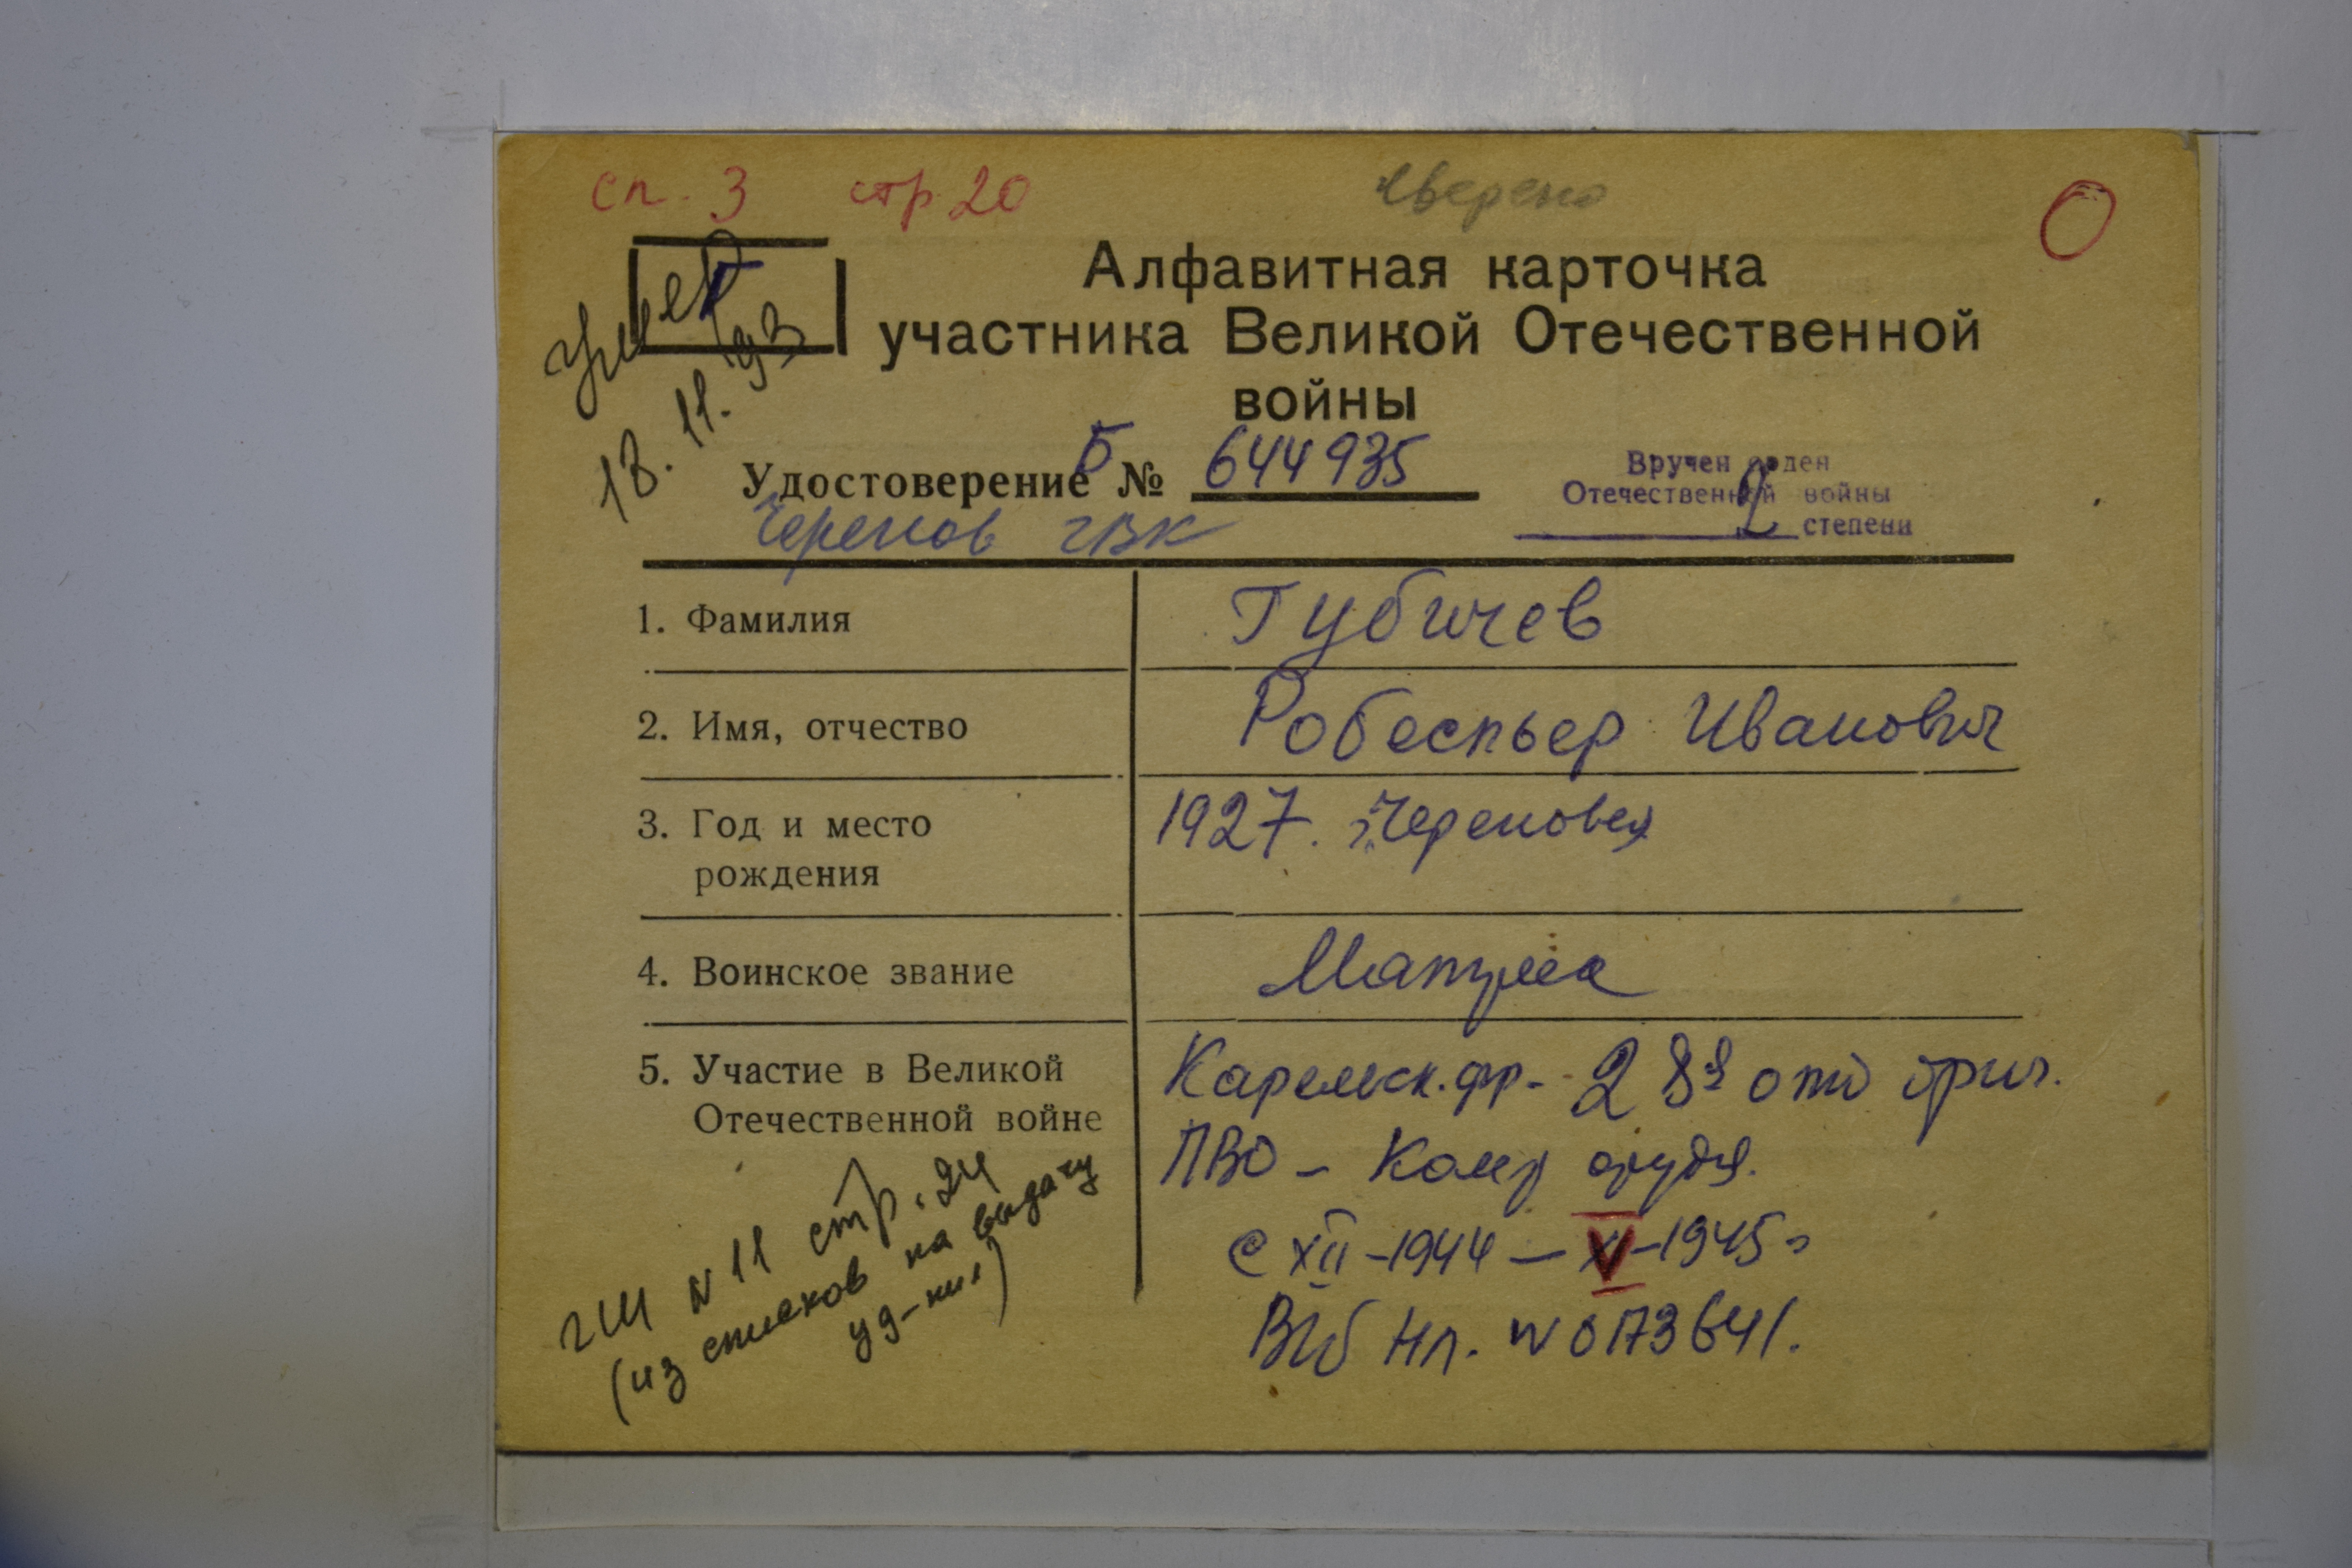 сп. 3 стр 20
сверено
О
Г
умер
13.11.93
Алфавитная карточка
участника Великой Отечественной
войны
Удостоверение Б № 644935
Вручен орден
Отечественной войны
2 степени
Черепов ГВК
1. Фамилия
Губичев
2. Имя, отчество
Робеспьер Иванович
3. Год и место
рождения
1927. г. Череповец
4. Воинское звание
5. Участие в Великой
Отечественной войне
Карельск. фр. - 28я отд
ПВО - Ком орудия.
с XII - 1944 - V - 1945 г
ВИб НЛ. № 0173641.
ГШ № 11 стр. 24
(из списков на выдачу
уд-ния)